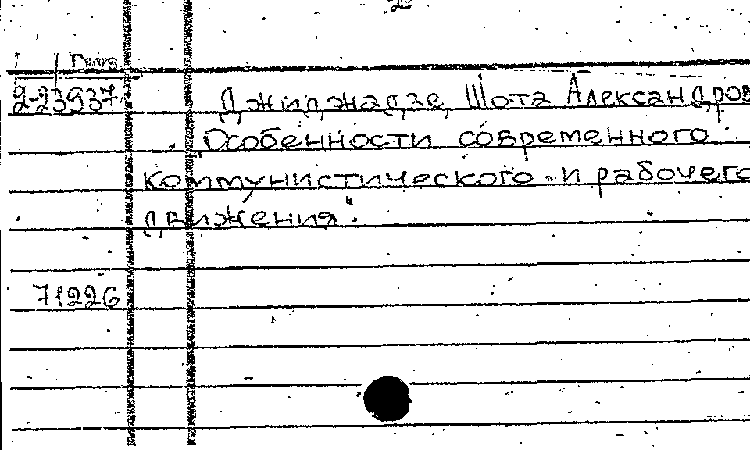 2-23937 Джиджадзе, Шота Александров
"Особенности современного
коммунистического и рабочего
движения".
71226